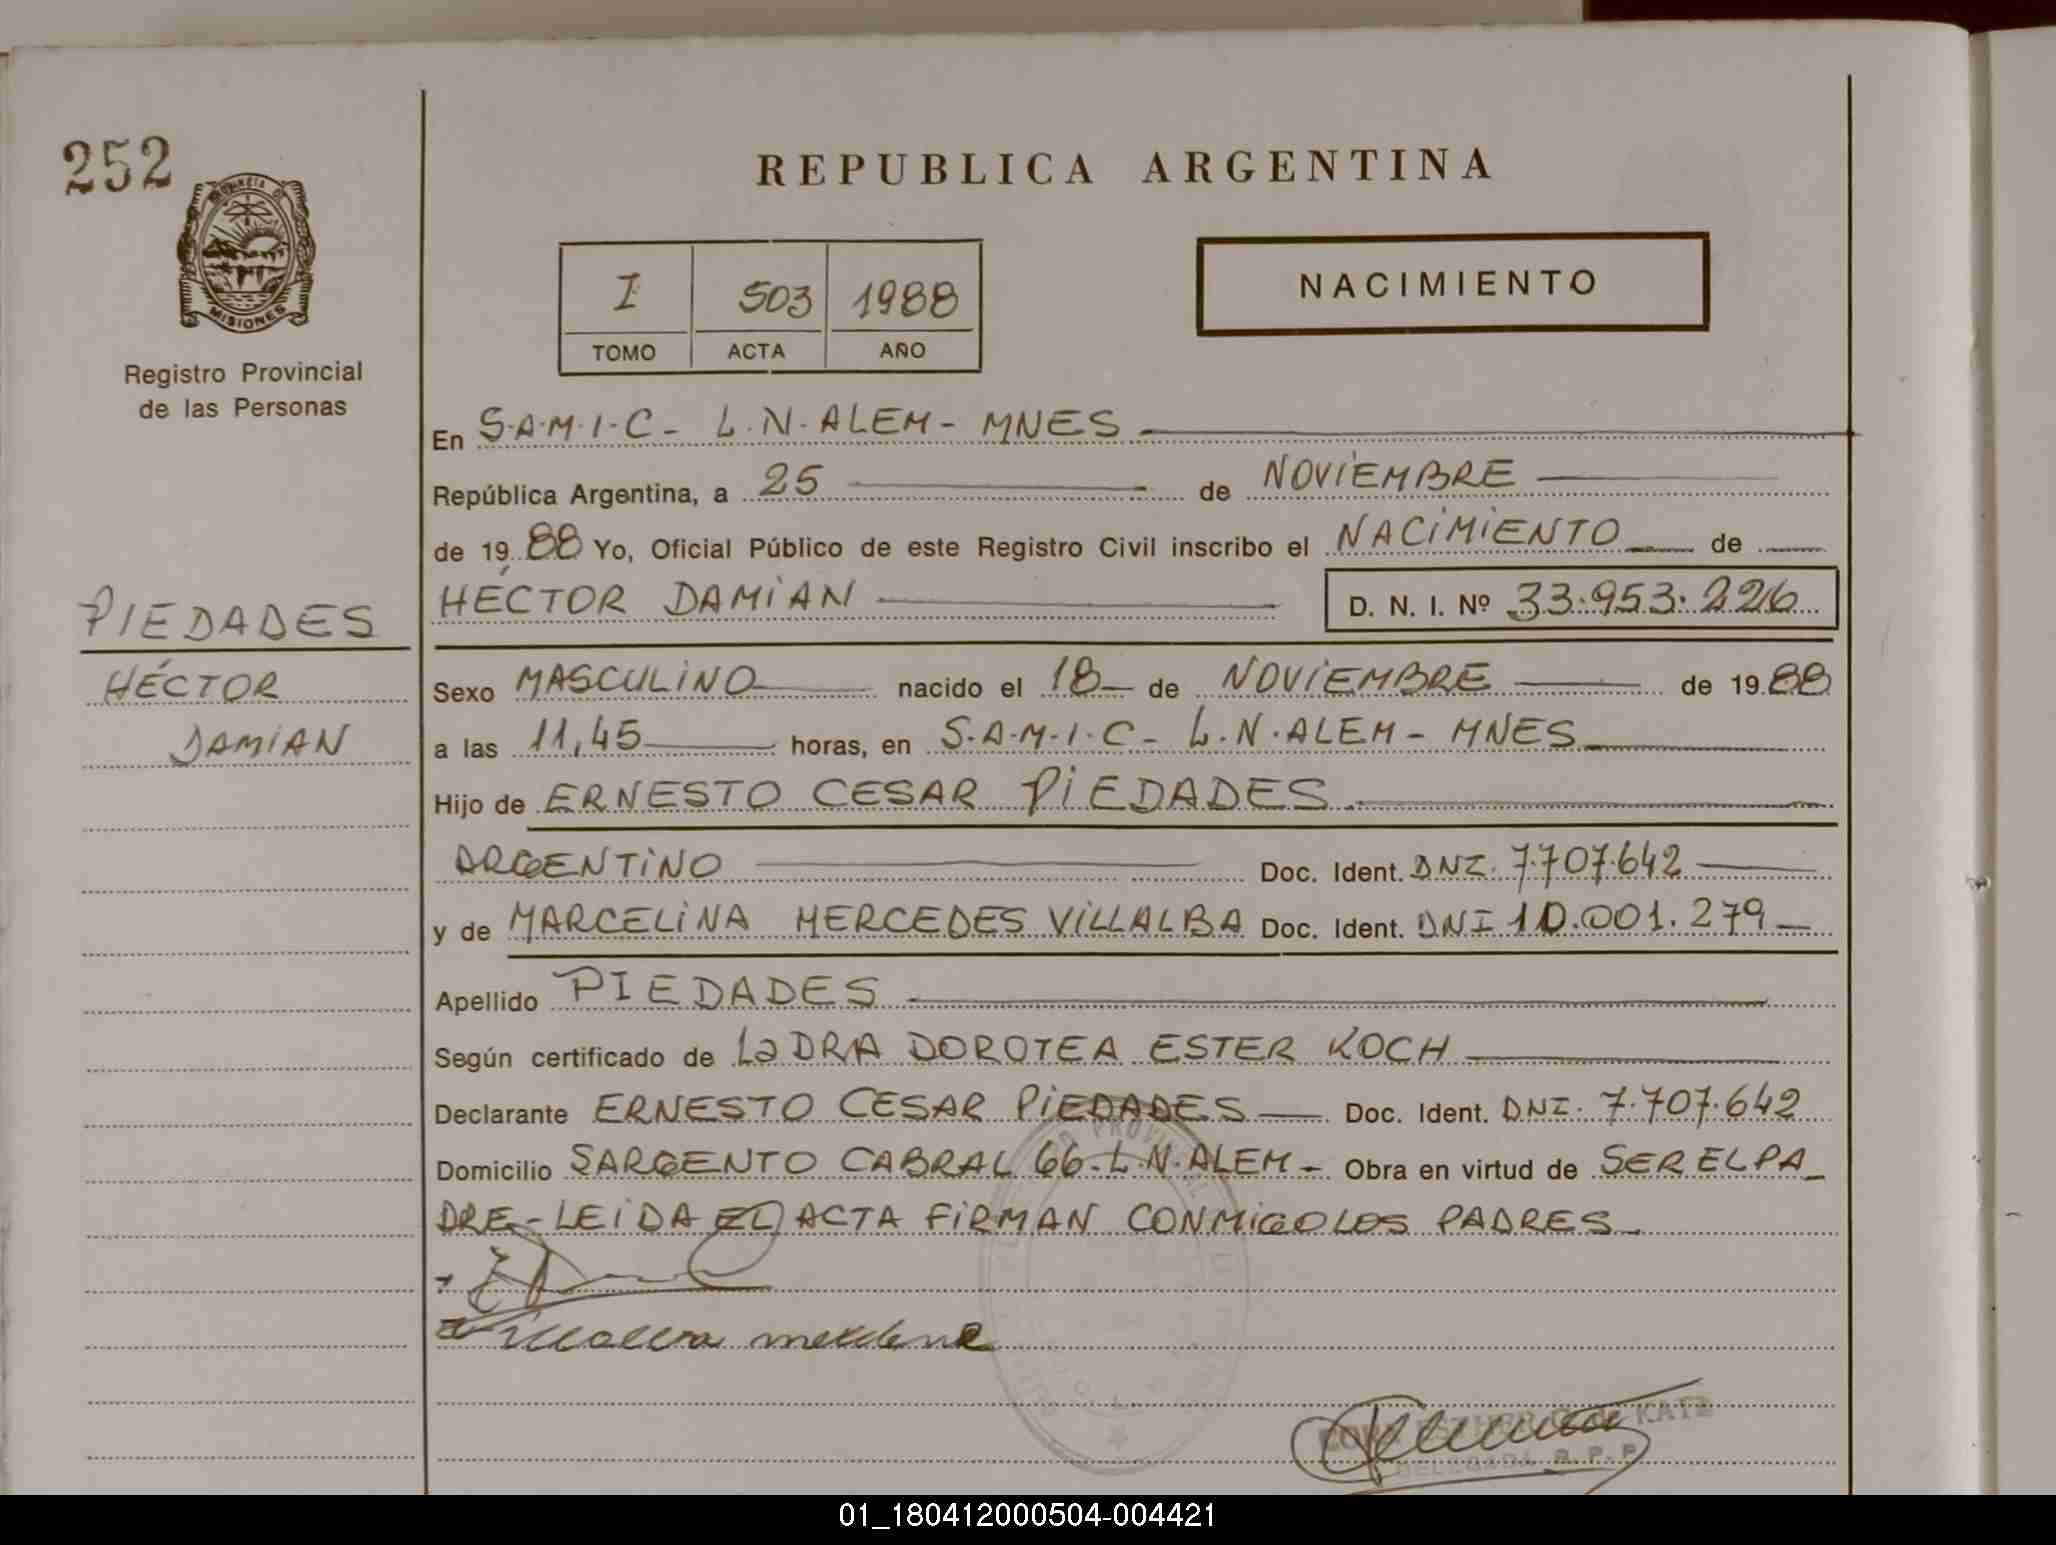 252
PROVINCIA DE
MISIONES
Registro Provincial
de las Personas
PIEDADES
HÉCTOR
DAMIAN
REPUBLICA ARGENTINA
I 503 1988
TOMO ACTA AÑO
NACIMIENTO
En S.A.M.I.C - L.N.ALEM - MNES
República Argentina, a 25 de NOVIEMBRE
de 19 88 Yo, Oficial Público de este Registro Civil inscribo el NACIMIENTO de
HÉCTOR DAMIAN D. N. I. Nº 33.953.226
Sexo MASCULINO nacido el 18 de NOVIEMBRE de 19 88
a las 11,45 horas, en S.A.M.I.C - L.N.ALEM - MNES
Hijo de ERNESTO CESAR PIEDADES
ARGENTINO Doc. Ident. DNI. 7.707.642
y de MARCELINA MERCEDES VILLALBA Doc. Ident. DNI 10.001.279
Apellido PIEDADES
Según certificado de La DRA DOROTEA ESTER KOCH
Declarante ERNESTO CESAR PIEDADES Doc. Ident. DNI. 7.707.642
Domicilio SARGENTO CABRAL 66 - L.N.ALEM - Obra en virtud de SER EL PA_
DRE - LEIDA EL ACTA FIRMAN CONMIGO LOS PADRES
de KATZ
DELEGADA R.P.P
01_180412000504-004421